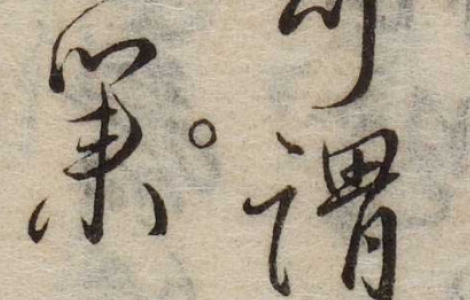 謂
策。